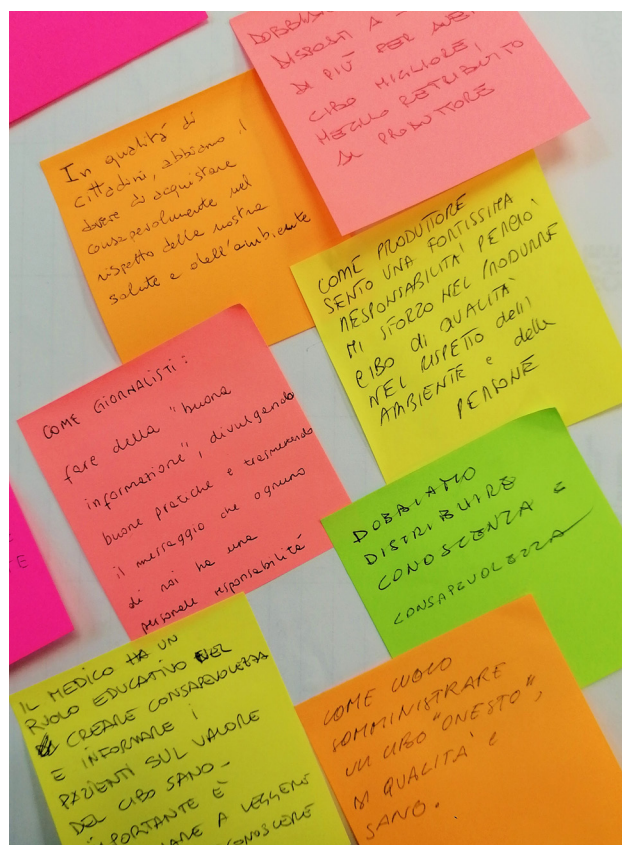 DOBBIAMO
DISPOSTI A
DI PIÙ PER AVERE
CIBO MIGLIORE,
MEGLIO RETRIBUITO
AL PRODUTTORE
In qualità di
cittadini, abbiamo il
dovere di acquistare
consapevolmente nel
rispetto della nostra
salute e dell'ambiente
COME PRODUTORE
SENTO UNA FORTISSIMA
RESPONSABILITÀ PERCIÒ
MI SFORZO NEL PRODURRE
CIBO di QUALITÀ
NEL RISPETTO dell'
AMBIENTE e delle
PERSONE
COME GIORNALISTI:
fare della "buona
informazione", divulgando
buone pratiche e trasmettendo
il messaggio che ognuno
di noi ha una
personale responsabilità
DOBBIAMO
DISTRIBUIRE
CONOSCENZA E
CONSAPEVOLEZZA
IL MEDICO HA UN
RUOLO EDUCATIVO NEL
CREARE CONSAPEVOLEZZA
E INFORMARE I
PAZIENTI SUL VALORE
DEL CIBO SANO -
IMPORTANTE È
A LEGGERE
CONOSCERE
COME CUOCO
SOMMINISTRARE
UN CIBO "ONESTO",
DI QUALITÀ e
SANO.